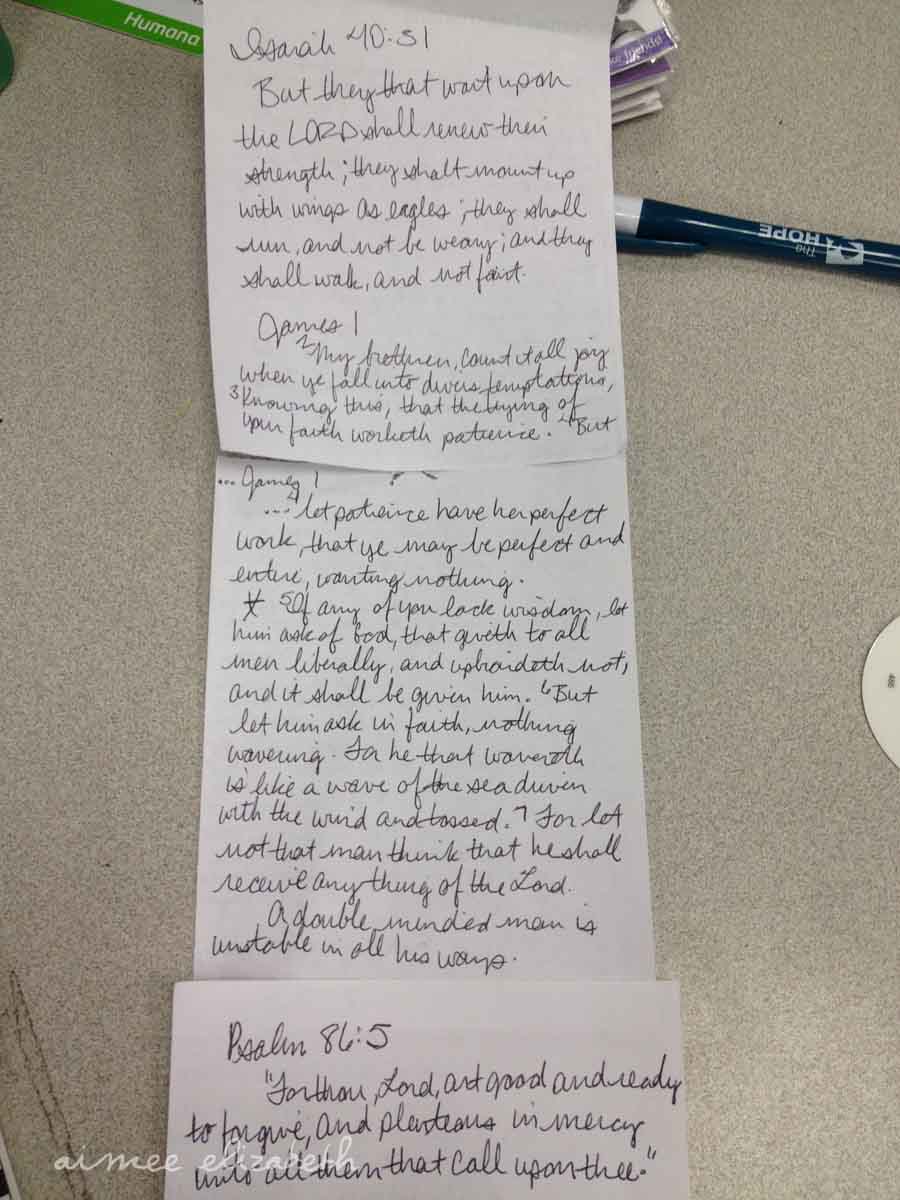 Humana
ke friends!
The
HOPE
486
Isaiah 40:31
But they that wait upon
the LORD shall renew their
strength; they shall mount up
with wings as eagles; they shall
run, and not be weary; and they
shall walk, and not faint.
James 1
2 My brethren, count it all joy
when ye fall into divers temptations,
3 Knowing this, that the trying of
your faith worketh patience. 4 But
... James 1
...4 let patience have her perfect
work, that ye may be perfect and
entire, wanting nothing.
* 5 If any of you lack wisdom, let
him ask of God, that giveth to all
men liberally, and upbraideth not;
and it shall be given him. 6 But
let him ask in faith, nothing
wavering. For he that wavereth
is like a wave of the sea driven
with the wind and tossed. 7 For let
not that man think that he shall
receive any thing of the Lord.
A double minded man is
unstable in all his ways.
Psalm 86:5
"For thou, Lord, art good and ready
to forgive, and plenteous in mercy
unto all them that call upon thee."
aimee elizabeth